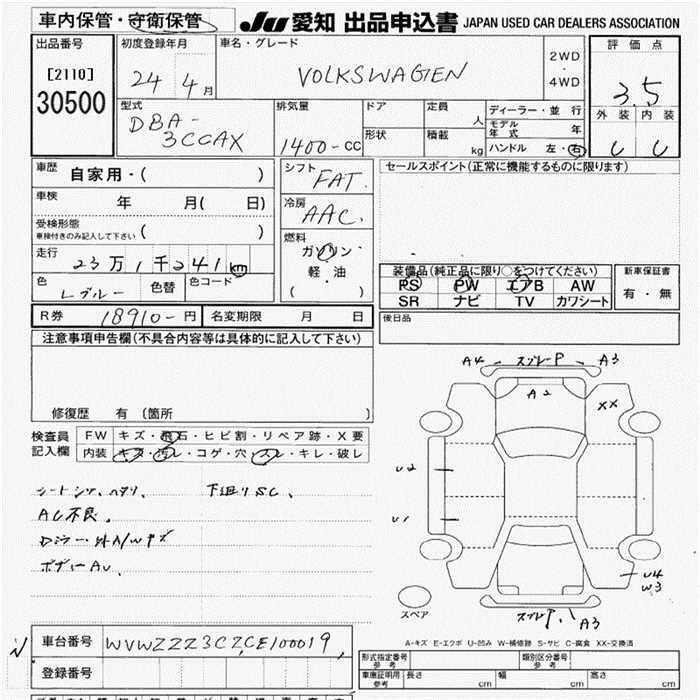 車内保管・守衛保管
JU 愛知 出品申込書 JAPAN USED CAR DEALERS ASSOCIATION
出品番号 初度登録年月 車名・グレード 評価点
[2110]
30500
24年 4月
VOLKSWAGEN
2WD
・
4WD
3.5
外装 内装
型式 排気量 ドア 定員 人 ディーラー・並行
DBA-
3CCAX
1400-CC
形状 積載 kg
モデル年式 年
ハンドル 左・右
車歴 自家用・( )
シフト FAT.
セールスポイント(正常に機能するものに限ります)
車検 年 月( 日)
冷房 AAC.
受検形態
車検付きのみ記入して下さい ( )
燃料
ガソリン
軽・油
( )
走行 23万1千241km
装備品(純正品に限り○をつけてください) 新車保証書
PS PW エアB AW 有・無
SR ナビ TV カワシート
色 Lブルー 色替 色コード
R券 18910-円 名変期限 月 日
後日品
注意事項申告欄(不具合内容等は具体的に記入して下さい)
修復歴 有 (箇所 )
検査員
記入欄
FW キズ・飛石・ヒビ割・リペア跡・X要
内装 キズ・汚レ・コゲ・穴・スレ・キレ・破レ
シートシワ、ヘタリ、 下廻りSC、
AC不良、
Dミラー・外A/Wキズ
ボディーAU、
A4 スプレーP A3
A2
XX
U2
U1
U4
W3
スプレーP、 A3
スペア
A-キズ E-エクボ U-凹み W-補修跡 S-サビ C-腐食 XX-交換済
車台番号 WVWZZZ3CZCE100019
登録番号
形式指定番号
参考
類別区分番号
参考
車庫証明用
参考
長さ 幅 高さ
cm cm cm